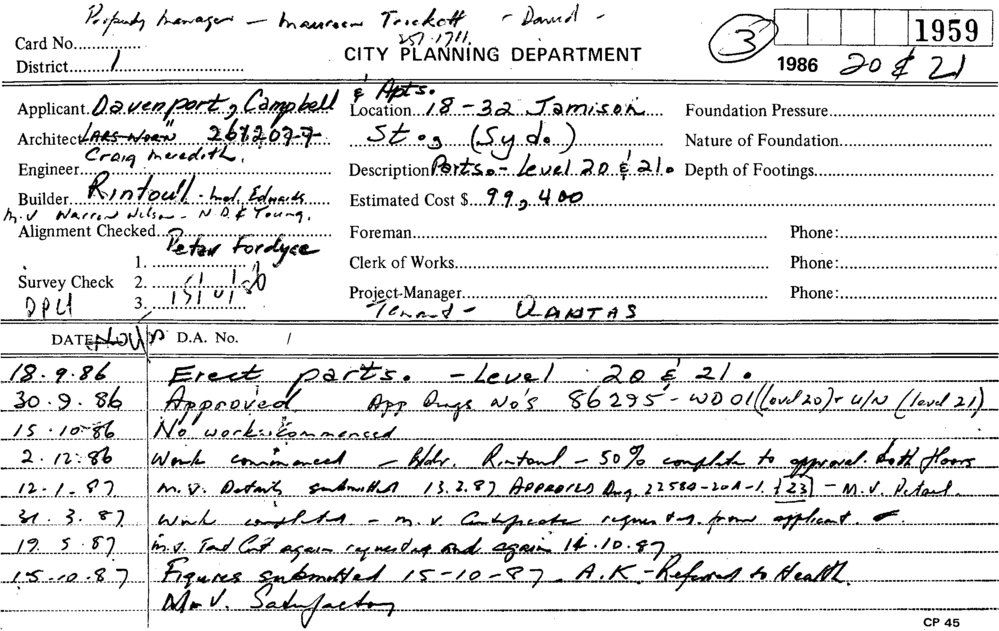 Property Manager - Maureen Trickett - David -
257.1711
Card No.
CITY PLANNING DEPARTMENT
3
1959
District 1
1986 20 & 21
Applicant. Davenport, Campbell
& Apts.
Location. 18-32 Jamison
Foundation Pressure
Architect
St., (Syd.)
Nature of Foundation
Craig Meredith.
Engineer
Description Parts. - Level 20 & 21. Depth of Footings
Builder Rintoul -
Estimated Cost $. 99,400
M.V Warren Wilson - N.D. & Young.
Alignment Checked
Foreman
Phone:
Peter Fordyce
1.
Clerk of Works
Phone:
Survey Check 2.
Project-Manager
Phone:
3.
Tenant - QANTAS
DATE D.A. No. /
18.9.86 Erect parts. - Level 20 & 21.
30.9.86 Approved App Dwgs No's 86295-WD01 (level 20) + U/N (level 21)
15.10.86 No work commenced
2.12.86 Work commenced - Bldr. Rintoul - 50% complete to approval. both floors
12.1.87 M.V. Details submitted 13.2.87 APPROVED Dwg. 22584-20A-1. [23] - M.V. Detail.
31.3.87 Work completed - M.V Certificate requested from applicant.
19.5.87 M.V. Test Cert again requested and again 14.10.87
15-10-87 Figures submitted 15-10-87 A.K. - Referred to Health.
M.V. Satisfactory
CP 45